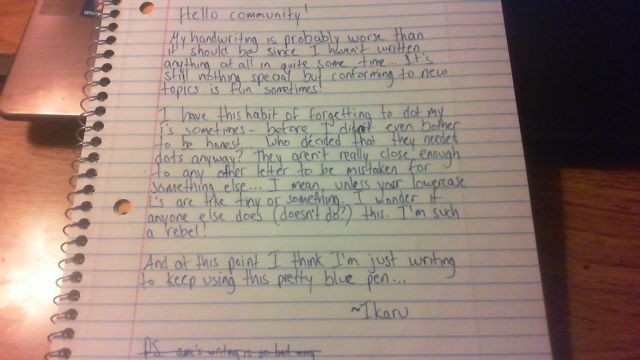 Hello community!
My handwriting is probably worse than
it should be since I haven't written
anything at all in quite some time... It's
still nothing special but conforming to new
topics is fun sometimes!
I have this habit of forgetting to dot my
i's sometimes - before I didn't even bother
to be honest. Who decided that they needed
dots anyway? They aren't really close enough
to any other letter to be mistaken for
something else... I mean, unless your lowercase
L's are like tiny or something. I wonder if
anyone else does (doesn't do?) this. I'm such
a rebel!
And at this point I think I'm just writing
to keep using this pretty blue pen...
~Ikaru
PS. writing is so bad